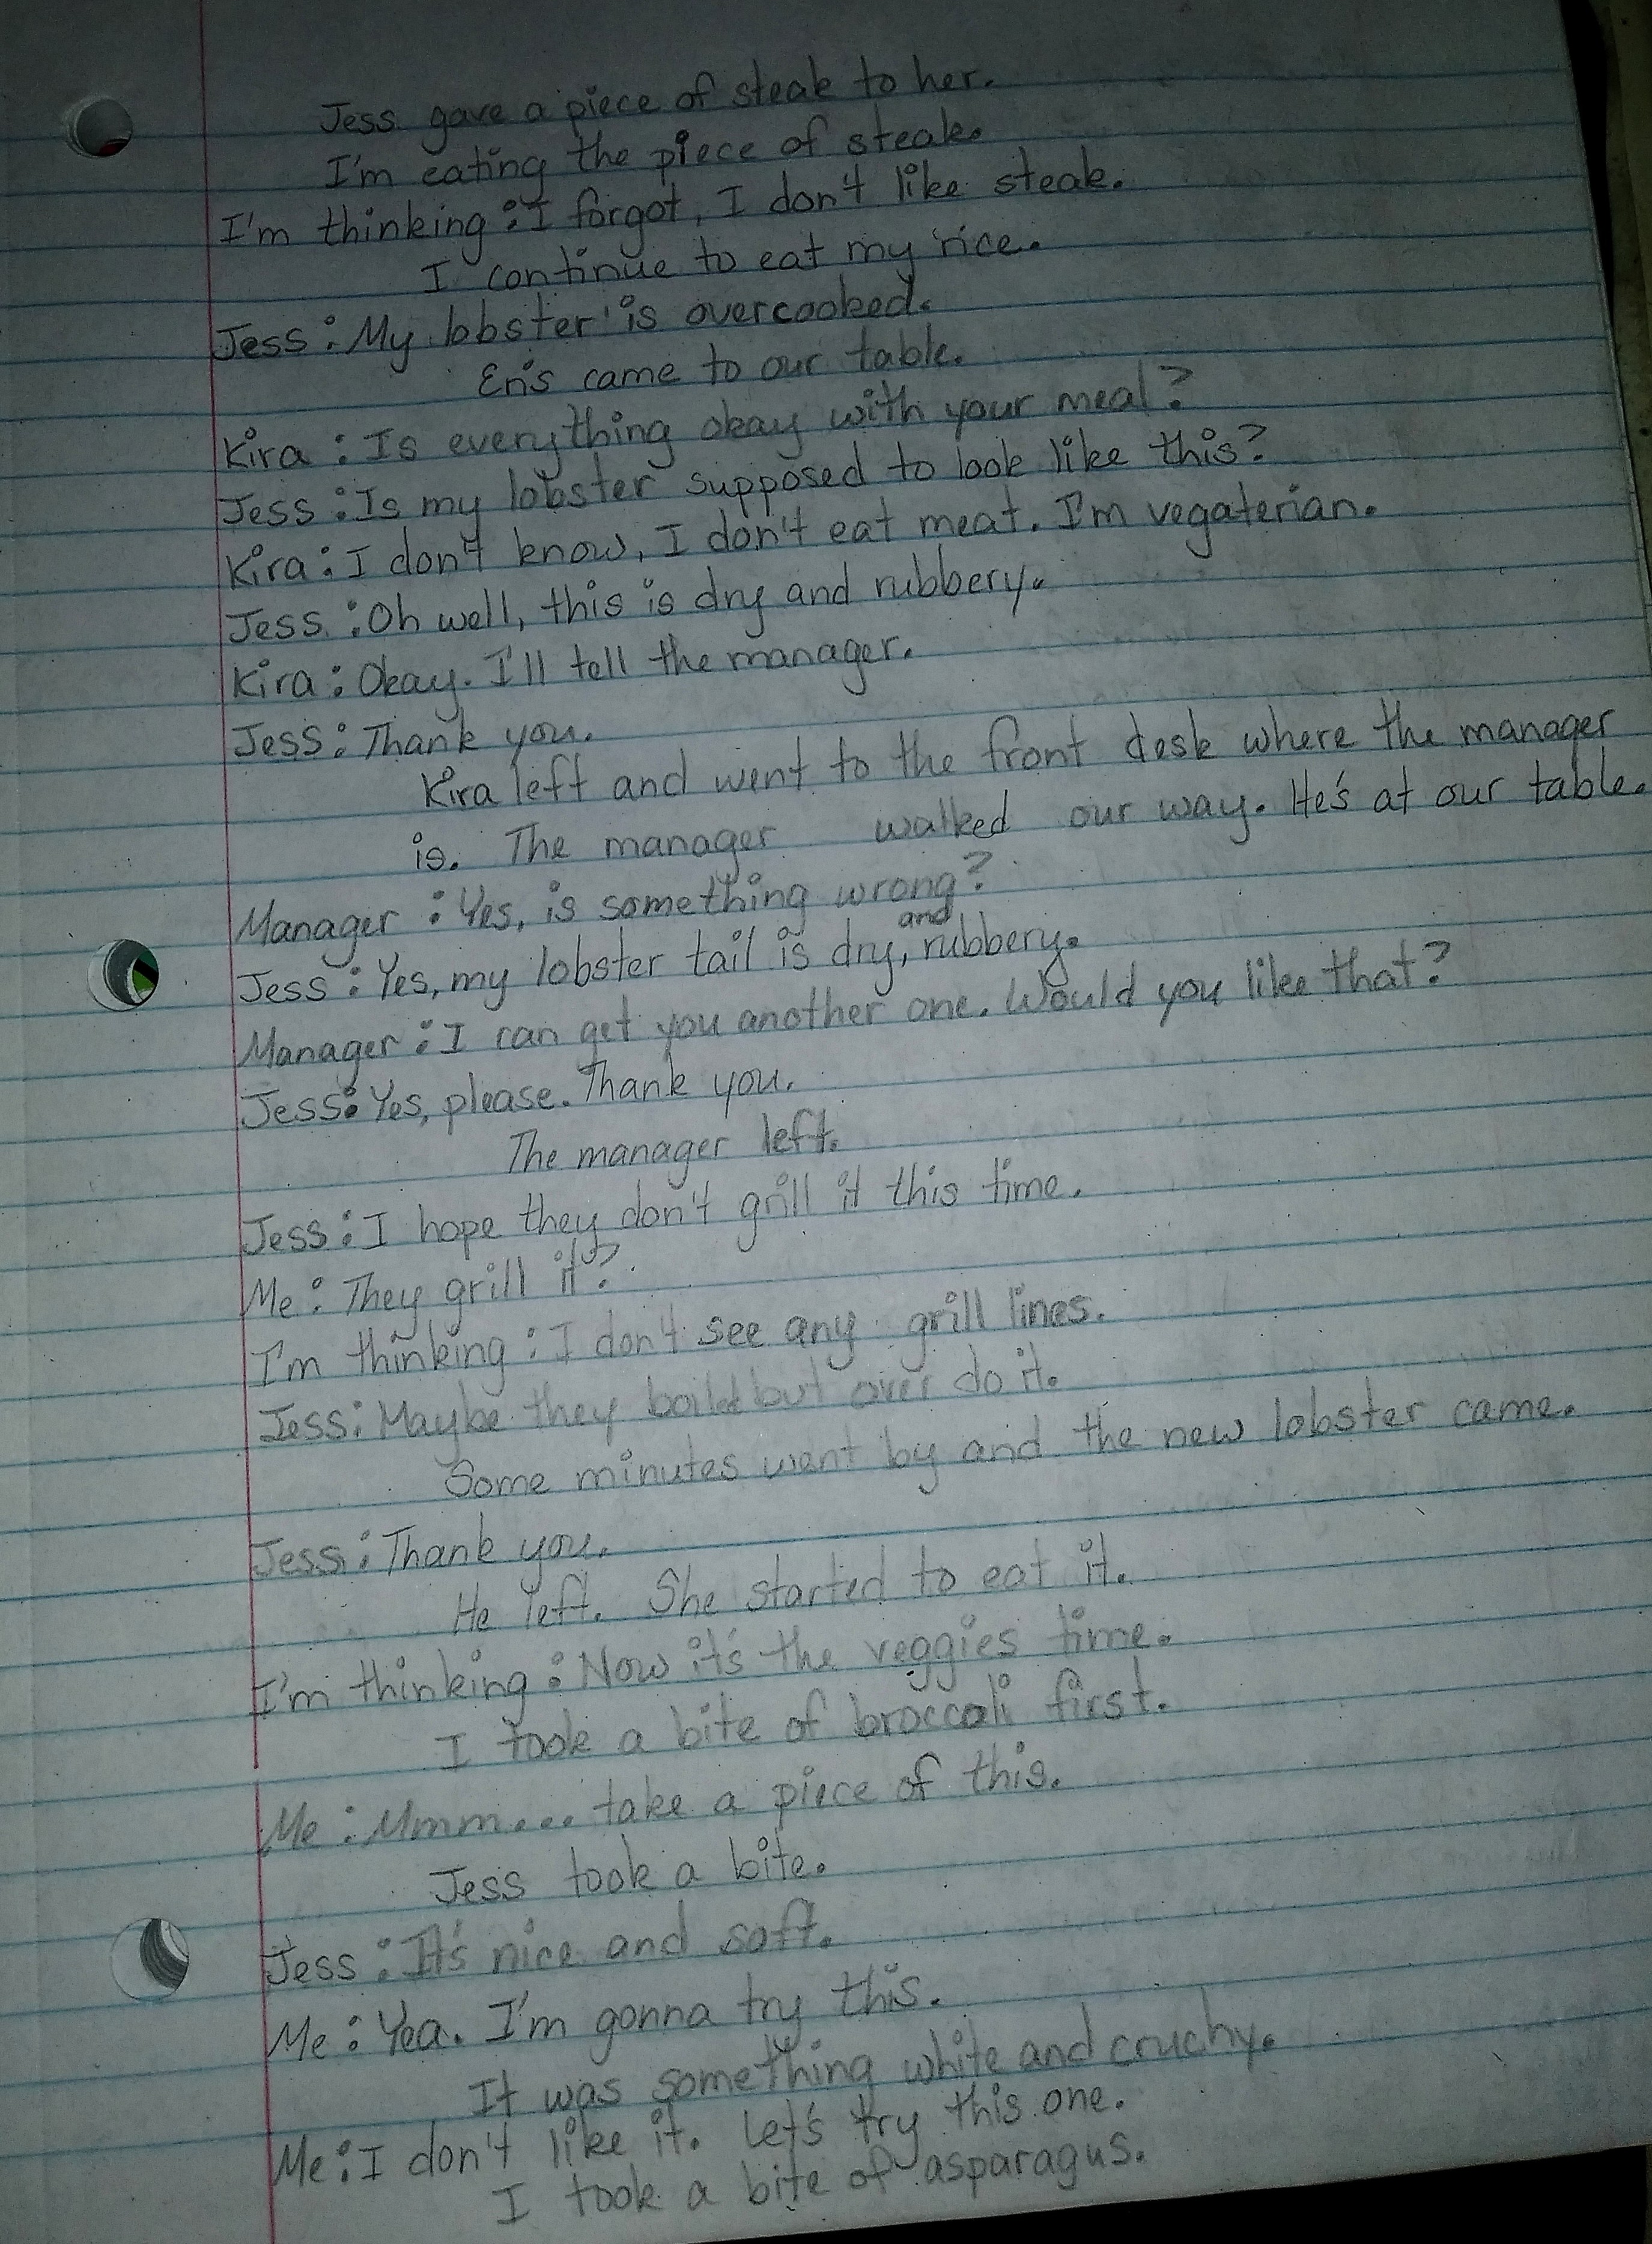 Jess gave a piece of steak to her.
I'm eating the piece of steak.
I'm thinking : I forgot, I don't like steak.
I continue to eat my rice.
Jess : My lobster is overcooked.
En's came to our table.
Kira : Is everything okay with your meal?
Jess : Is my lobster supposed to look like this?
Kira : I don't know, I don't eat meat. I'm vegaterian.
Jess : Oh well, this is dry and rubbery.
Kira : Okay. I'll tell the manager.
Jess : Thank you.
Kira left and went to the front desk where the manager
is. The manager walked our way. He's at our table.
Manager : Yes, is something wrong?
Jess : Yes, my lobster tail is dry, and rubbery.
Manager : I can get you another one. Would you like that?
Jess : Yes, please. Thank you.
The manager left.
Jess : I hope they don't grill it this time.
Me : They grill it?
I'm thinking : I don't see any grill lines.
Jess : Maybe they boild but over do it.
Some minutes went by and the new lobster came.
Jess : Thank you.
He left. She started to eat it.
I'm thinking : Now it's the veggies time.
I took a bite of broccoli first.
Me : Mmm... take a piece of this.
Jess took a bite.
Jess : It's nice and soft.
Me : Yea. I'm gonna try this.
It was something white and cruchy.
Me : I don't like it. Let's try this one.
I took a bite of asparagus.